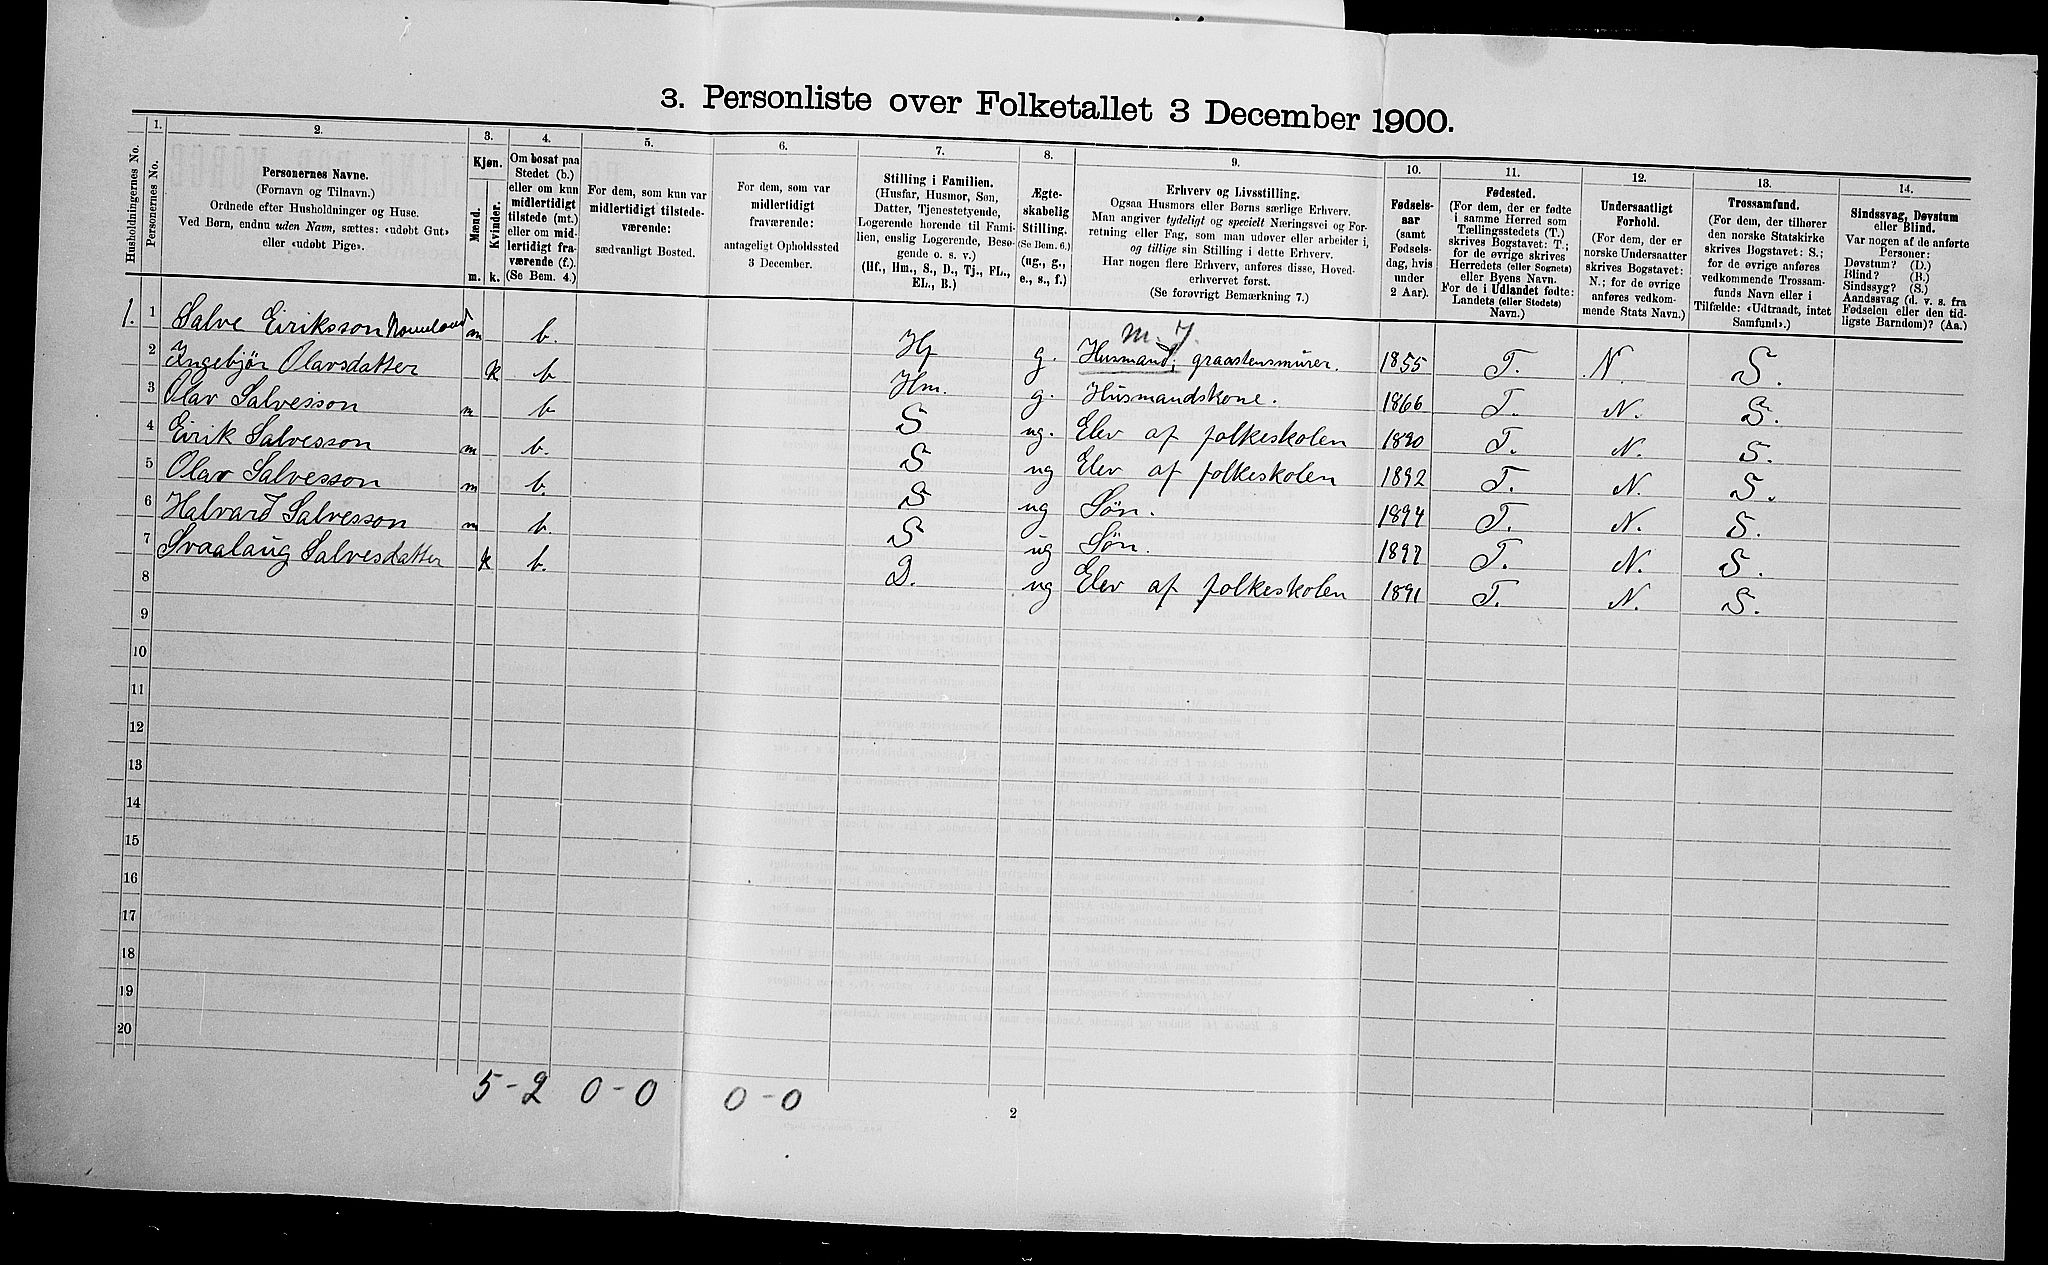 3. Personliste over Folketallet 3 December 1900.
Husholdningernes No.
1.
Personernes No.
2.
Personernes Navne.
(Fornavn og Tilnavn.)
Ordnede efter Husholdninger og Huse.
Ved Børn, endnu uden Navn, sættes: «udøbt Gut»
eller «udøbt Pige».
3.
Kjøn.
Mænd.
Kvinder.
m. k.
4.
Om bosat paa
Stedet (b.)
eller om kun
midlertidigt
tilstede (mt.)
eller om mid-
lertidigt fra-
værende (f.).
(Se Bem. 4.)
5.
For dem, som kun var
midlertidigt tilstede-
værende:
sædvanligt Bosted.
6.
For dem, som var
midlertidigt
fraværende:
antageligt Opholdssted
3 December.
7.
Stilling i Familien.
(Husfar, Husmor, Søn,
Datter, Tjenestetyende,
Logerende hørende til Fami-
lien, enslig Logerende, Besø-
gende o. s. v.)
(Hf., Hm., S., D., Tj., FL.,
EL., B.)
8.
Ægte-
skabelig
Stilling.
(Se Bem. 6.)
(ug., g.,
e., s., f.)
9.
Erhverv og Livsstilling.
Ogsaa Husmors eller Børns særlige Erhverv.
Man angiver tydeligt og specielt Næringsvei og For-
retning eller Fag, som man udøver eller arbeider i,
og tillige sin Stilling i dette Erhverv.
Har nogen flere Erhverv, anføres disse, Hoved-
erhvervet først.
(Se forøvrigt Bemærkning 7.)
10.
Fødsels-
aar
(samt
Fødsels-
dag, hvis
under
2 Aar).
11.
Fødested.
(For dem, der er fødte
i samme Herred som
Tællingsstedets (T.)
skrives Bogstavet: T.;
for de øvrige skrives
Herredets (eller Sognets)
eller Byens Navn.
For de i Udlandet fødte:
Landets (eller Stedets)
Navn.)
12.
Undersaatligt
Forhold.
(For dem, der er
norske Undersaatter
skrives Bogstavet:
N.; for de øvrige
anføres vedkom-
mende Stats Navn.)
13.
Trossamfund.
(For dem, der tilhører
den norske Statskirke
skrives Bogstavet: S.;
for de øvrige anføres
vedkommende Trossam-
funds Navn eller i
Tilfælde: «Udtraadt, intet
Samfund».)
14.
Sindssvag, Døvstum
eller Blind.
Var nogen af de anførte
Personer:
Døvstum? (D.)
Blind? (B.)
Sindssyg? (S.)
Aandssvag (d. v. s. fra
Fødselen eller den tid-
ligste Barndom)? (Aa.)
M. J.
1. 1 Salve Eiriksson Nomeland m b. Hf g. Husmand, graastensmurer. 1855 T. N. S.
2 Ingebjør Olavsdatter k b Hm. g. Husmandskone. 1866 T. N. S.
3 Olav Salvesson m b. S ug. Elev af folkeskolen 1890 T. N. S.
4 Eirik Salvesson m b. S ug Elev af folkeskolen 1892 T. N. S.
5 Olav Salvesson m b. S ug Søn. 1894 T. N. S.
6 Halvard Salvesson m b. S ug Søn. 1897 T. N. S.
7 Svaalaug Salvesdatter k b. D. ug Elev af folkeskolen 1891 T. N. S.
8
9
10
11
12
13
14
15
16
17
18
19
20
5-2 0-0 0-0
2